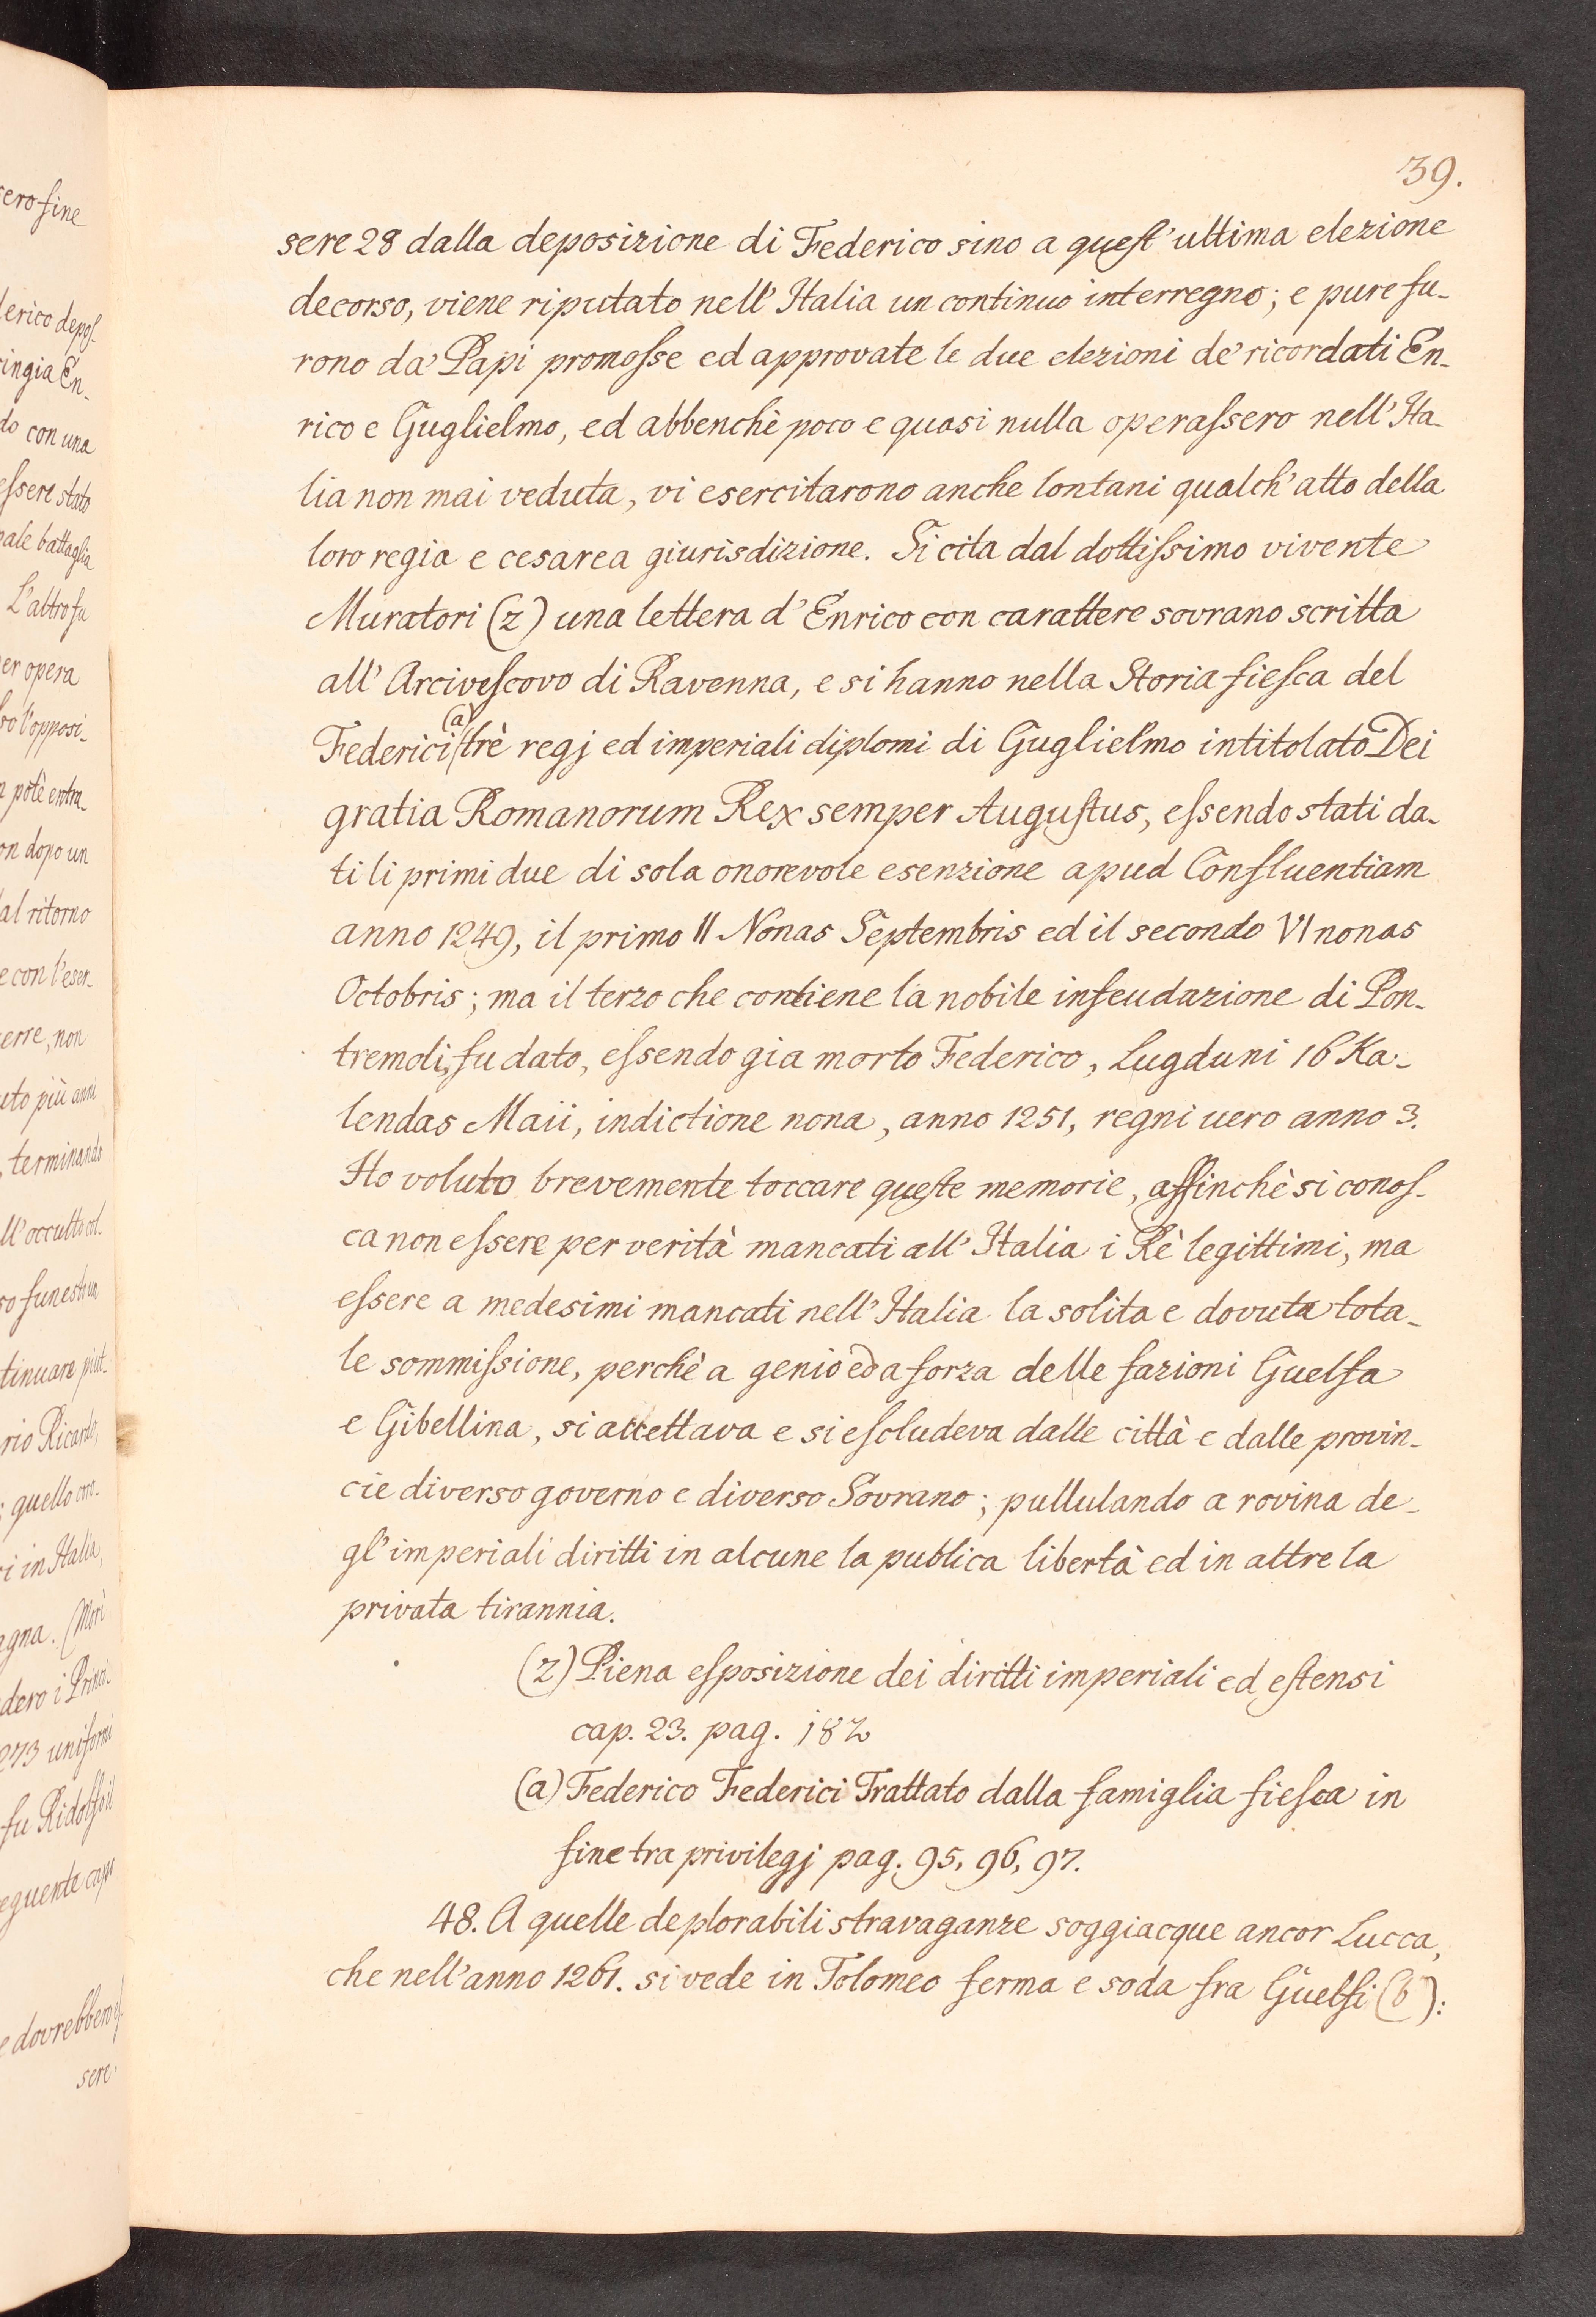 39.
sere 28 dalla deposizione di Federico sino a quest' ultima elezione
decorso, viene riputato nell' Italia un continuo interregno; e pure fu-
rono da' Papi promosse ed approvate le due elezioni de' ricordati En-
rico e Guglielmo, ed abbenchè poco e quasi nulla operassero nell' Ita-
lia non mai veduta, vi esercitarono anche lontani qualch' atto della
loro regia e cesarea giurisdizione. Si cita dal dottissimo vivente
Muratori (z) una lettera d' Enrico con carattere sovrano scritta
all' Arcivescovo di Ravenna, e si hanno nella Storia fiesca del
Federici (a) trè regj ed imperiali diplomi di Guglielmo intitolato Dei
gratia Romanorum Rex semper Augustus, essendo stati da-
ti li primi due di sola onorevole esenzione apud Confluentiam
anno 1249, il primo II Nonas Septembris ed il secondo VI nonas
Octobris; ma il terzo che contiene la nobile infeudazione di Pon-
tremoli, fu dato, essendo gia morto Federico, Lugduni 16 Ka-
lendas Maii, indictione nona, anno 1251, regni uero anno 3.
Ho voluto brevemente toccare queste memorie, affinchè si conos-
ca non essere per verità mancati all' Italia i Rè legittimi, ma
essere a medesimi mancati nell' Italia la solita e dovuta tota-
le sommissione, perchè a genio ed a forza delle fazioni Guelfa
e Gibellina, si accettava e si escludeva dalle città e dalle provin-
cie diverso governo e diverso Sovrano; pullulando a rovina de-
gl' imperiali diritti in alcune la publica libertà ed in altre la
privata tirannia.
(z) Piena esposizione dei diritti imperiali ed estensi
cap. 23. pag. 182
(a) Federico Federici Trattato dalla famiglia fiesca in
fine tra privilegj pag. 95, 96, 97.
48. A quelle deplorabili stravaganze soggiacque ancor Lucca,
che nell' anno 1261. si vede in Tolomeo ferma e soda fra Guelfi (b):